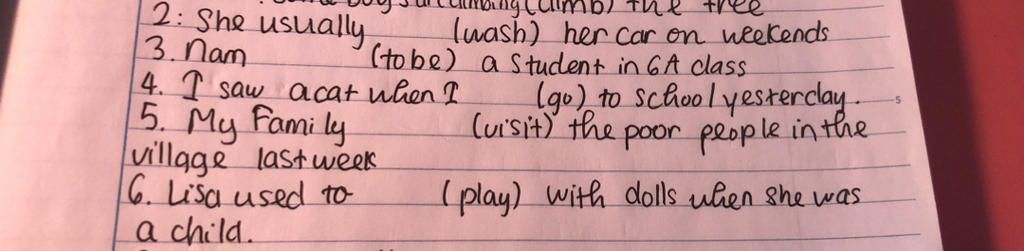 boys are climbing (climb) the tree
2: She usually (wash) her car on weekends
3. Nam (to be) a student in 6A class
4. I saw a cat when I (go) to school yesterday.
5
5. My Family (visit) the poor people in the
village last week
6. Lisa used to (play) with dolls when she was
a child.